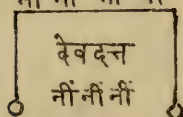 देवदत्त
नीं नीं नीं